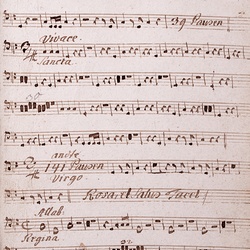 39 Pausen
Vivace
Sancta
andte
141 Pausen
Virgo
Rosa, et Salus Tacet
Allab.
Regina